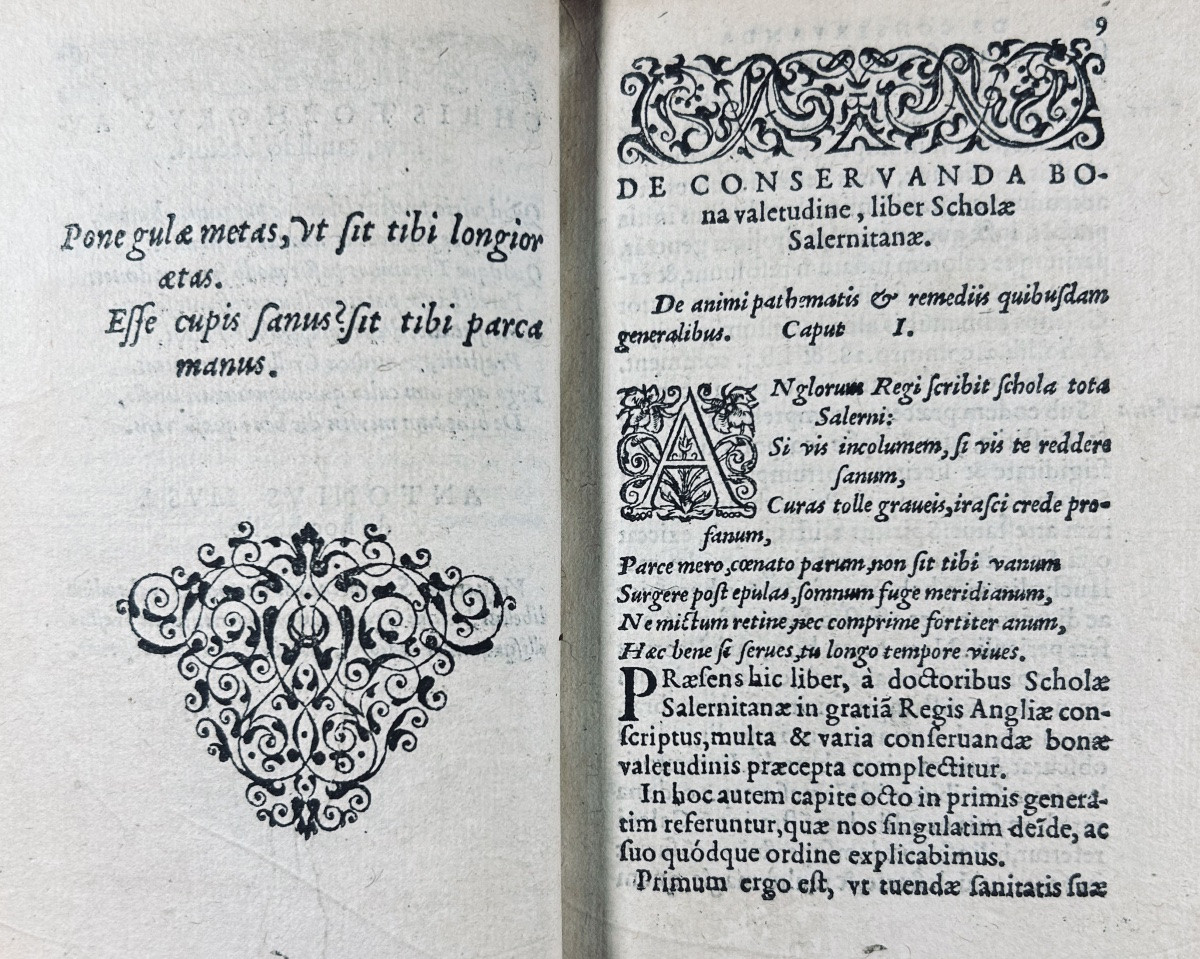 Pone gulæ metas, vt ſit tibi longior
ætas.
Eſſe cupis ſanus? ſit tibi parca
manus.
9
DE CONSERVANDA BO-
na valetudine, liber Scholæ
Salernitanæ.
De animi pathematis & remediis quibuſdam
generalibus. Caput I.
ANglorum Regi ſcribit ſchola tota
Salerni:
Si vis incolumem, ſi vis te reddere
ſanum,
Curas tolle graueis, iraſci crede pro-
fanum,
Parce mero, cœnato parum, non ſit tibi vanum
Surgere poſt epulas, ſomnum fuge meridianum,
Ne mictum retine, nec comprime fortiter anum,
Hæc bene ſi ſerues, tu longo tempore viues.
PRæſens hic liber, à doctoribus Scholæ
Salernitanæ in gratiã Regis Angliæ con-
ſcriptus, multa & varia conſeruandæ bonæ
valetudinis præcepta complectitur.
In hoc autem capite octo in primis genera-
tim referuntur, quæ nos ſingulatim deĩde, ac
ſuo quódque ordine explicabimus.
Primum ergo eſt, vt tuendæ ſanitatis ſuæ